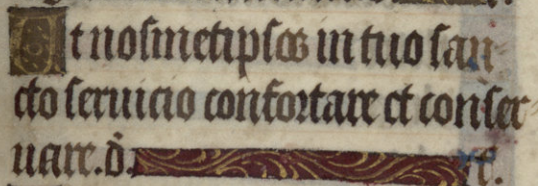 Et nosmetipsos in tuo san
cto seruicio confortare et conser
uare. d. xx.